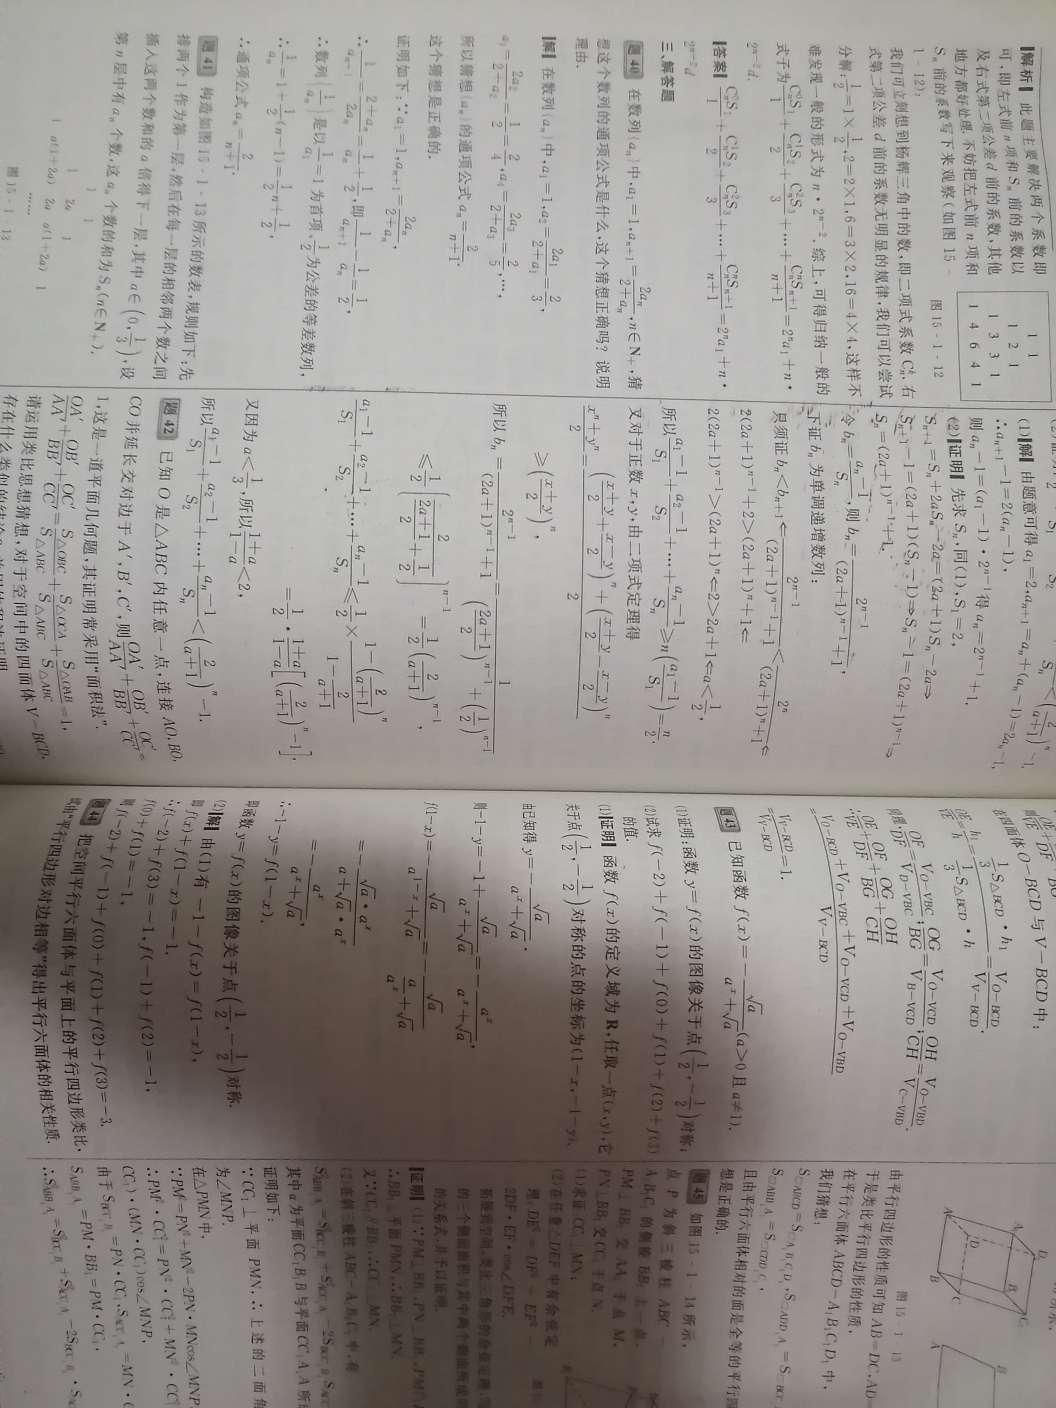 【解析】 此题主要解决两个系数即
可,即左式前 n 项和 Sₙ 前的系数以
及右式第二项公差 d 前的系数,其他
地方都好处理.不妨把左式前 n 项和
Sₙ 前的系数写下来观察(如图 15-
1-12):
1 1
1 2 1
1 3 3 1
1 4 6 4 1
图 15-1-12
我们可立刻想到杨辉三角中的数,即二项式系数 Cₙᵏ.右
式第二项公差 d 前的系数无明显的规律,我们可以尝试
分解:1/2=1×1/2,2=2×1,6=3×2,16=4×4,这样不
难发现一般的形式为 n·2ⁿ⁻².综上,可得归纳一般的
式子为 Cₙ⁰S₁/1+Cₙ¹S₂/2+Cₙ²S₃/3+…+CₙⁿSₙ₊₁/(n+1)=2ⁿa₁+n·
2ⁿ⁻²d.
【答案】 Cₙ⁰S₁/1+Cₙ¹S₂/2+Cₙ²S₃/3+…+CₙⁿSₙ₊₁/(n+1)=2ⁿa₁+n·
2ⁿ⁻²d
三、解答题
题40 在数列{aₙ}中,a₁=1,aₙ₊₁=2aₙ/(2+aₙ),n∈N₊,猜
想这个数列的通项公式是什么,这个猜想正确吗?说明
理由.
【解】 在数列{aₙ}中,a₁=1,a₂=2a₁/(2+a₁)=2/3,
a₃=2a₂/(2+a₂)=1/2=2/4,a₄=2a₃/(2+a₃)=2/5,…,
所以猜想{aₙ}的通项公式 aₙ=2/(n+1).
这个猜想是正确的.
证明如下:∵a₁=1,aₙ₊₁=2aₙ/(2+aₙ),
∴1/aₙ₊₁=(2+aₙ)/2aₙ=1/aₙ+1/2,即1/aₙ₊₁-1/aₙ=1/2,
∴数列{1/aₙ}是以1/a₁=1为首项,1/2为公差的等差数列,
∴1/aₙ=1+1/2(n-1)=1/2n+1/2,
∴通项公式 aₙ=2/(n+1).
题41 构造如图 15-1-13所示的数表,规则如下:先
排两个1作为第一层,然后在每一层的相邻两个数之间
插入这两个数和的 a 倍得下一层,其中 a∈(0,1/3),设
第 n 层中有 aₙ 个数,这 aₙ 个数的和为 Sₙ(n∈N₊).
1 1
1 2a 1
1 a(1+2a) 2a a(1+2a) 1
……
图 15-1-13
(1)【解】 由题意可得 a₁=2,aₙ₊₁=aₙ+(aₙ-1)=2aₙ-1,
∴aₙ₊₁-1=2(aₙ-1),
则 aₙ-1=(a₁-1)·2ⁿ⁻¹得 aₙ=2ⁿ⁻¹+1.
(2)【证明】 先求 Sₙ,同(1),S₁=2,
Sₙ₊₁=Sₙ+2aSₙ-2a=(2a+1)Sₙ-2a⇒
Sₙ₊₁-1=(2a+1)(Sₙ-1)⇒Sₙ-1=(2a+1)ⁿ⁻¹⇒
Sₙ=(2a+1)ⁿ⁻¹+1.
令 bₙ=(aₙ-1)/Sₙ,则 bₙ=2ⁿ⁻¹/((2a+1)ⁿ⁻¹+1),
下证 bₙ 为单调递增数列:
只须证 bₙ<bₙ₊₁⇐2ⁿ⁻¹/((2a+1)ⁿ⁻¹+1)<2ⁿ/((2a+1)ⁿ+1)⇐
2(2a+1)ⁿ⁻¹+2>(2a+1)ⁿ+1⇐
2(2a+1)ⁿ⁻¹>(2a+1)ⁿ⇐2>2a+1⇐a<1/2,
所以(a₁-1)/S₁+(a₂-1)/S₂+…+(aₙ-1)/Sₙ≥n((a₁-1)/S₁)=n/2.
又对于正数 x,y,由二项式定理得
(xⁿ+yⁿ)/2=(((x+y)/2+(x-y)/2)ⁿ+((x+y)/2-(x-y)/2)ⁿ)/2
≥((x+y)/2)ⁿ,
所以 bₙ=2ⁿ⁻¹/((2a+1)ⁿ⁻¹+1)=1/(((2a+1)/2)ⁿ⁻¹+(1/2)ⁿ⁻¹)
≤1/2(2/((2a+1)/2+1/2))ⁿ⁻¹=1/2(2/(a+1))ⁿ⁻¹,
(a₁-1)/S₁+(a₂-1)/S₂+…+(aₙ-1)/Sₙ≤1/2×(1-(2/(a+1))ⁿ)/(1-2/(a+1))
=1/2·(1+a)/(1-a)[(2/(a+1))ⁿ-1].
又因为 a<1/3,所以(1+a)/(1-a)<2,
所以(a₁-1)/S₁+(a₂-1)/S₂+…+(aₙ-1)/Sₙ<(2/(a+1))ⁿ-1.
题42 已知 O 是△ABC 内任意一点,连接 AO,BO,
CO 并延长交对边于 A′,B′,C′,则OA′/AA′+OB′/BB′+OC′/CC′=
1,这是一道平面几何题,其证明常采用“面积法”.
OA′/AA′+OB′/BB′+OC′/CC′=S△OBC/S△ABC+S△OCA/S△ABC+S△OAB/S△ABC=1,
请运用类比思想猜想,对于空间中的四面体 V-BCD,
在四面体 O-BCD 与 V-BCD 中:
OE/VE=h₁/h=(1/3S△BCD·h₁)/(1/3S△BCD·h)=V_O-BCD/V_V-BCD.
同理,OF/DF=V_O-VBC/V_D-VBC;OG/BG=V_O-VCD/V_B-VCD;OH/CH=V_O-VBD/V_C-VBD.
∴OE/VE+OF/DF+OG/BG+OH/CH
=(V_O-BCD+V_O-VBC+V_O-VCD+V_O-VBD)/V_V-BCD
=V_V-BCD/V_V-BCD=1.
题43 已知函数 f(x)=-√a/(aˣ+√a)(a>0且a≠1).
(1)证明:函数 y=f(x)的图像关于点(1/2,-1/2)对称;
(2)试求 f(-2)+f(-1)+f(0)+f(1)+f(2)+f(3)
的值.
(1)【证明】 函数 f(x)的定义域为 R,任取一点(x,y),它
关于点(1/2,-1/2)对称的点的坐标为(1-x,-1-y).
由已知得 y=-√a/(aˣ+√a).
则-1-y=-1+√a/(aˣ+√a)=-aˣ/(aˣ+√a),
f(1-x)=-√a/(a¹⁻ˣ+√a)=-√a/(a/aˣ+√a)
=-√a·aˣ/(a+√a·aˣ)
=-aˣ/(aˣ+√a),
∴-1-y=f(1-x),
即函数 y=f(x)的图像关于点(1/2,-1/2)对称.
(2)【解】 由(1)有-1-f(x)=f(1-x),
即 f(x)+f(1-x)=-1.
∴f(-2)+f(3)=-1,f(-1)+f(2)=-1,
f(0)+f(1)=-1,
即 f(-2)+f(-1)+f(0)+f(1)+f(2)+f(3)=-3.
题44 把空间平行六面体与平面上的平行四边形类比,
试由“平行四边形对边相等”得出平行六面体的相关性质.
图 15-1-13
由平行四边形的性质可知 AB=DC,AD=
于是类比平行四边形的性质,
在平行六面体 ABCD-A₁B₁C₁D₁ 中,
我们猜想:
且由平行六面体相对的面是全等的平行四
想是正确的.
题45 如图 15-1-14 所示,
点 P 为斜三棱柱 ABC-
A₁B₁C₁ 的侧棱 BB₁ 上一点,
PM⊥BB₁ 交 AA₁ 于点 M,
PN⊥BB₁ 交 CC₁ 于点 N.
(1)求证:CC₁⊥MN;
(2)在任意△DEF 中有余弦定
理:DE²=DF²+EF²-
2DF·EF·cos∠DFE.
【证明】 (1)∵PM⊥BB₁,PN⊥BB₁,
∴BB₁⊥平面 PMN,∴BB₁⊥MN.
又∵CC₁∥BB₁,∴CC₁⊥MN.
(2)在斜三棱柱 ABC-A₁B₁C₁ 中,有
其中 α 为平面 CC₁B₁B 与平面 CC₁A₁A 所
证明如下:
∵CC₁⊥平面 PMN,∴上述的二面角
为∠MNP.
在△PMN 中,
∵PM²=PN²+MN²-2PN·MNcos∠MNP,
∴PM²·CC₁²=PN²·CC₁²+MN²·CC₁²
CC₁)·(MN·CC₁)cos∠MNP,